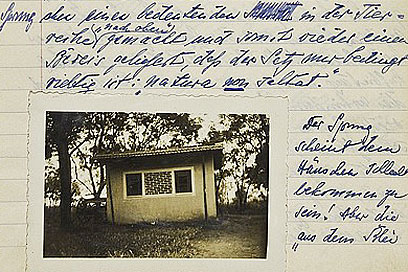 Sprung einen bedeutenden in der Tier=
nach oben
reihe gemacht und somit wieder einen
Beweis geliefert, daß der Satz nur bedingt
richtig ist: "natura non saltat."
Der Sprung
scheint dem
Häuschen
bekommen zu
sein! Aber die
"aus dem